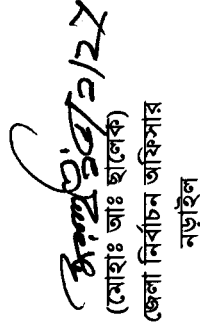 (মোহাঃ আঃ ছালেক)
জেলা নির্বাচন অফিসার
নড়াইল